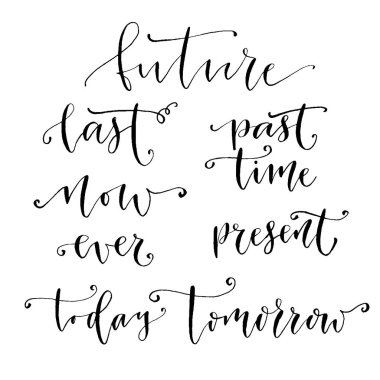 future
last
past
time
now
ever
present
today tomorrow